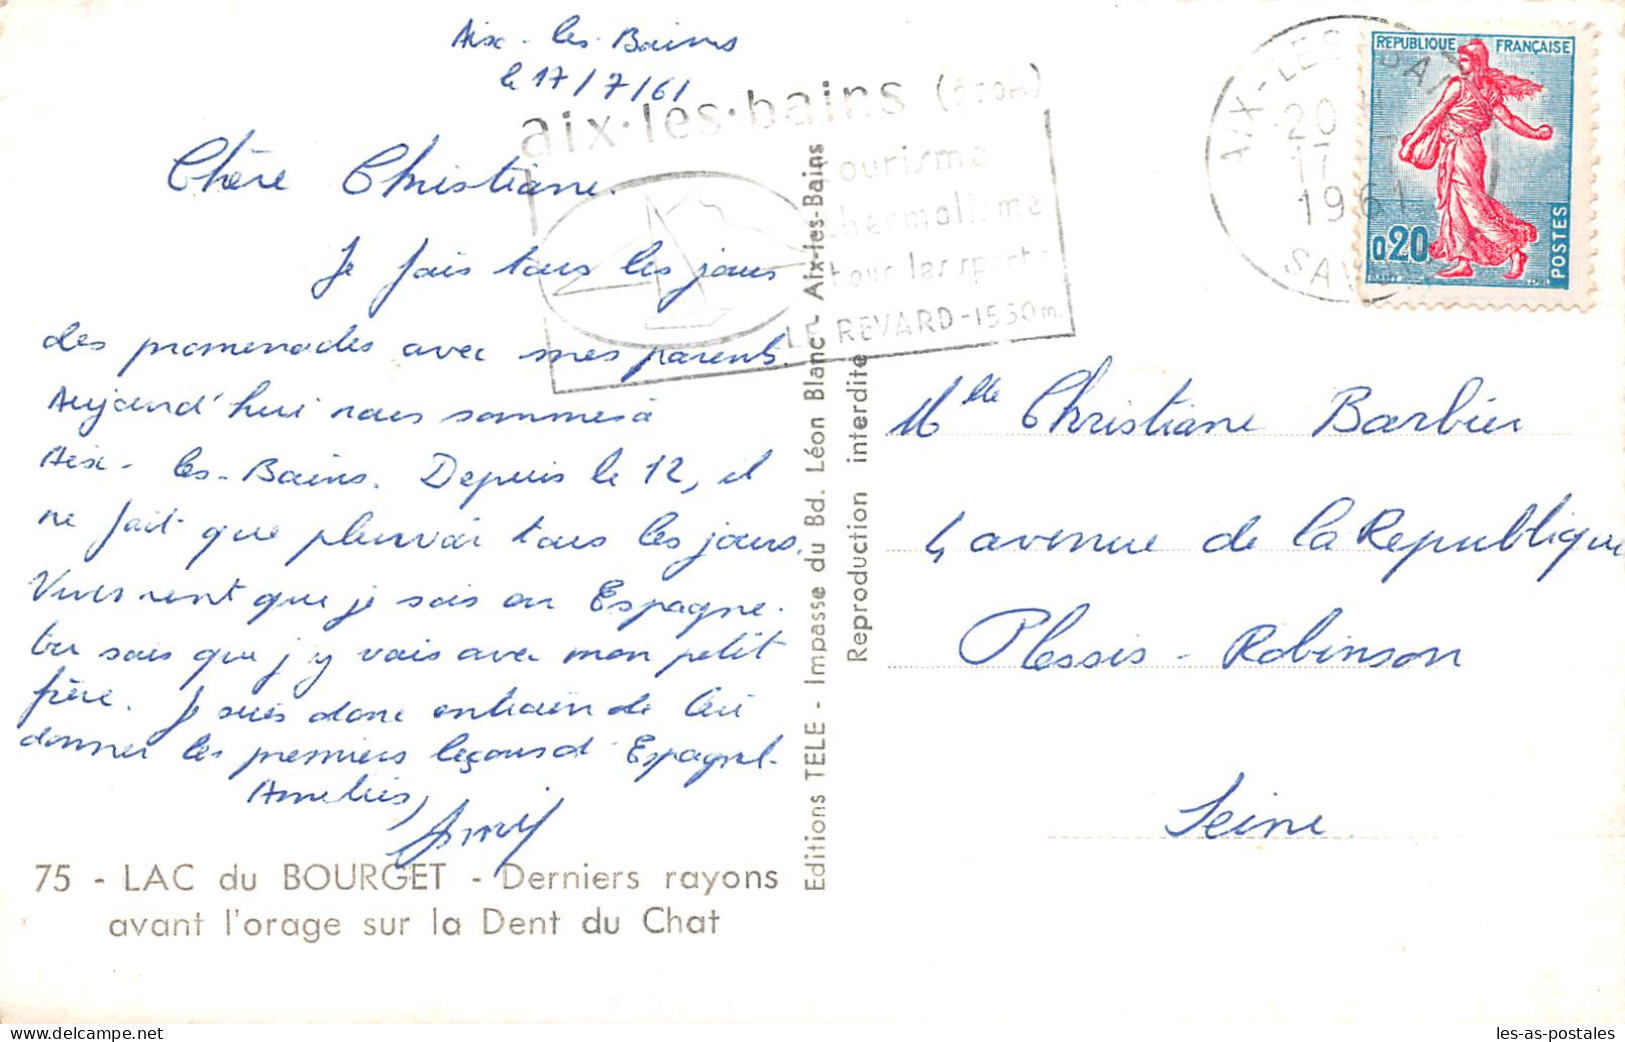 Aix-les-Bains
le 17/7/61
Chère Christiane.
Je fais tous les jours
des promenades avec mes parents.
Aujourd'hui nous sommes à
Aix-les-Bains. Depuis le 12, il
ne fait que pleuvoir tous les jours.
Vivement que je sois en Espagne.
tu sais que j'y vais avec mon petit
frère. Je suis donc entrain de lui
donner les premiers leçons d'Espagnol.
Amitiés,
75 - LAC du BOURGET - Derniers rayons
avant l'orage sur la Dent du Chat
aix-les-bains
tourisme
thermalisme
tous les sports
LE REVARD-1550m.
Editions TELE - Impasse du Bd. Léon Blanc - Aix-les-Bains
Reproduction interdite
AIX-LES-BAINS
20
17
1961
SAVOIE
REPUBLIQUE FRANÇAISE
0,20
POSTES
Mlle Christiane Barbier
4 avenue de la Republique
Plessis-Robinson
Seine
delcampe.net
les-as-postales